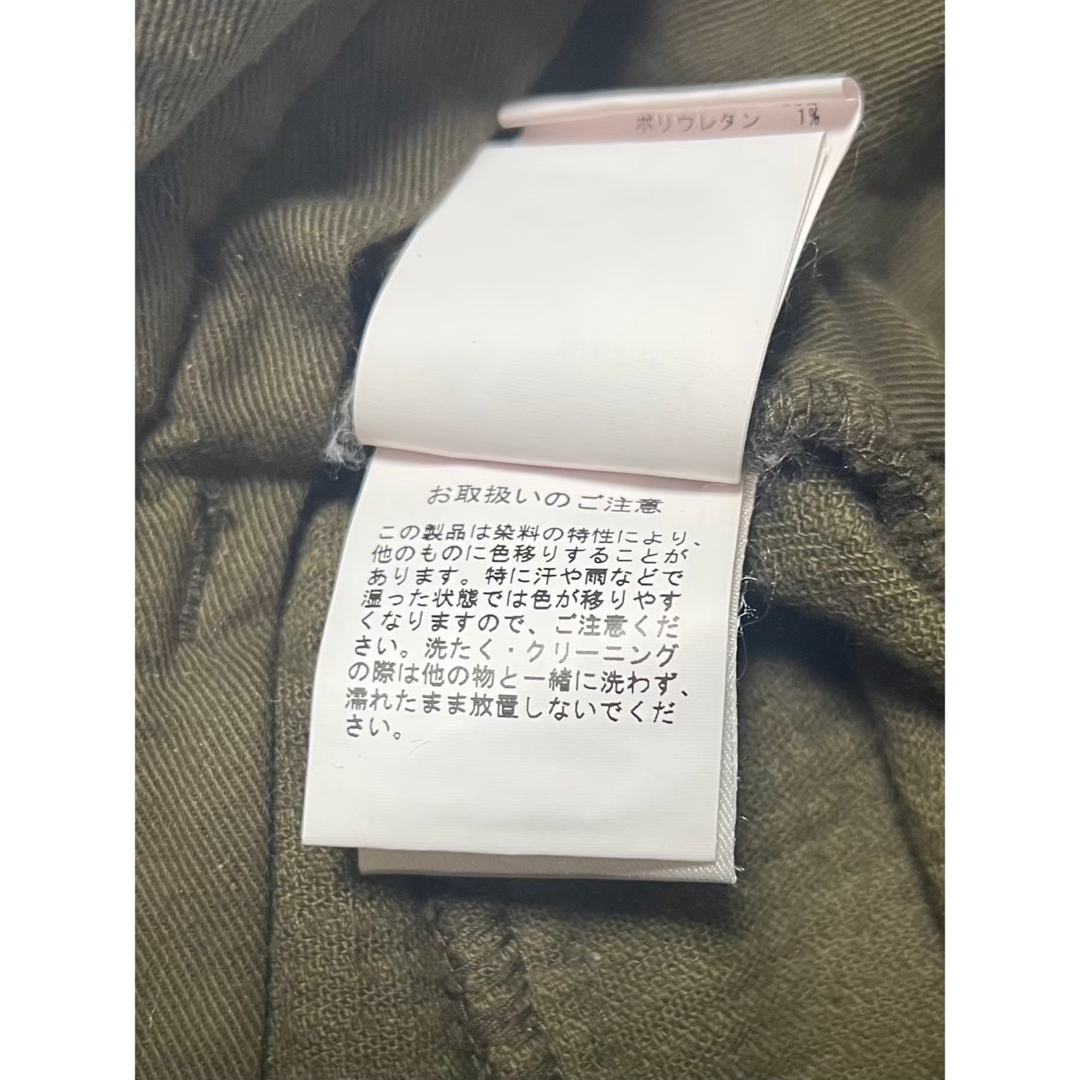 ポリウレタン 1%
お取扱いのご注意
この製品は染料の特性により、
他のものに色移りすることが
あります。特に汗や雨などで
湿った状態では色が移りやす
くなりますので、ご注意くだ
さい。洗たく・クリーニング
の際は他の物と一緒に洗わず、
濡れたまま放置しないでくだ
さい。